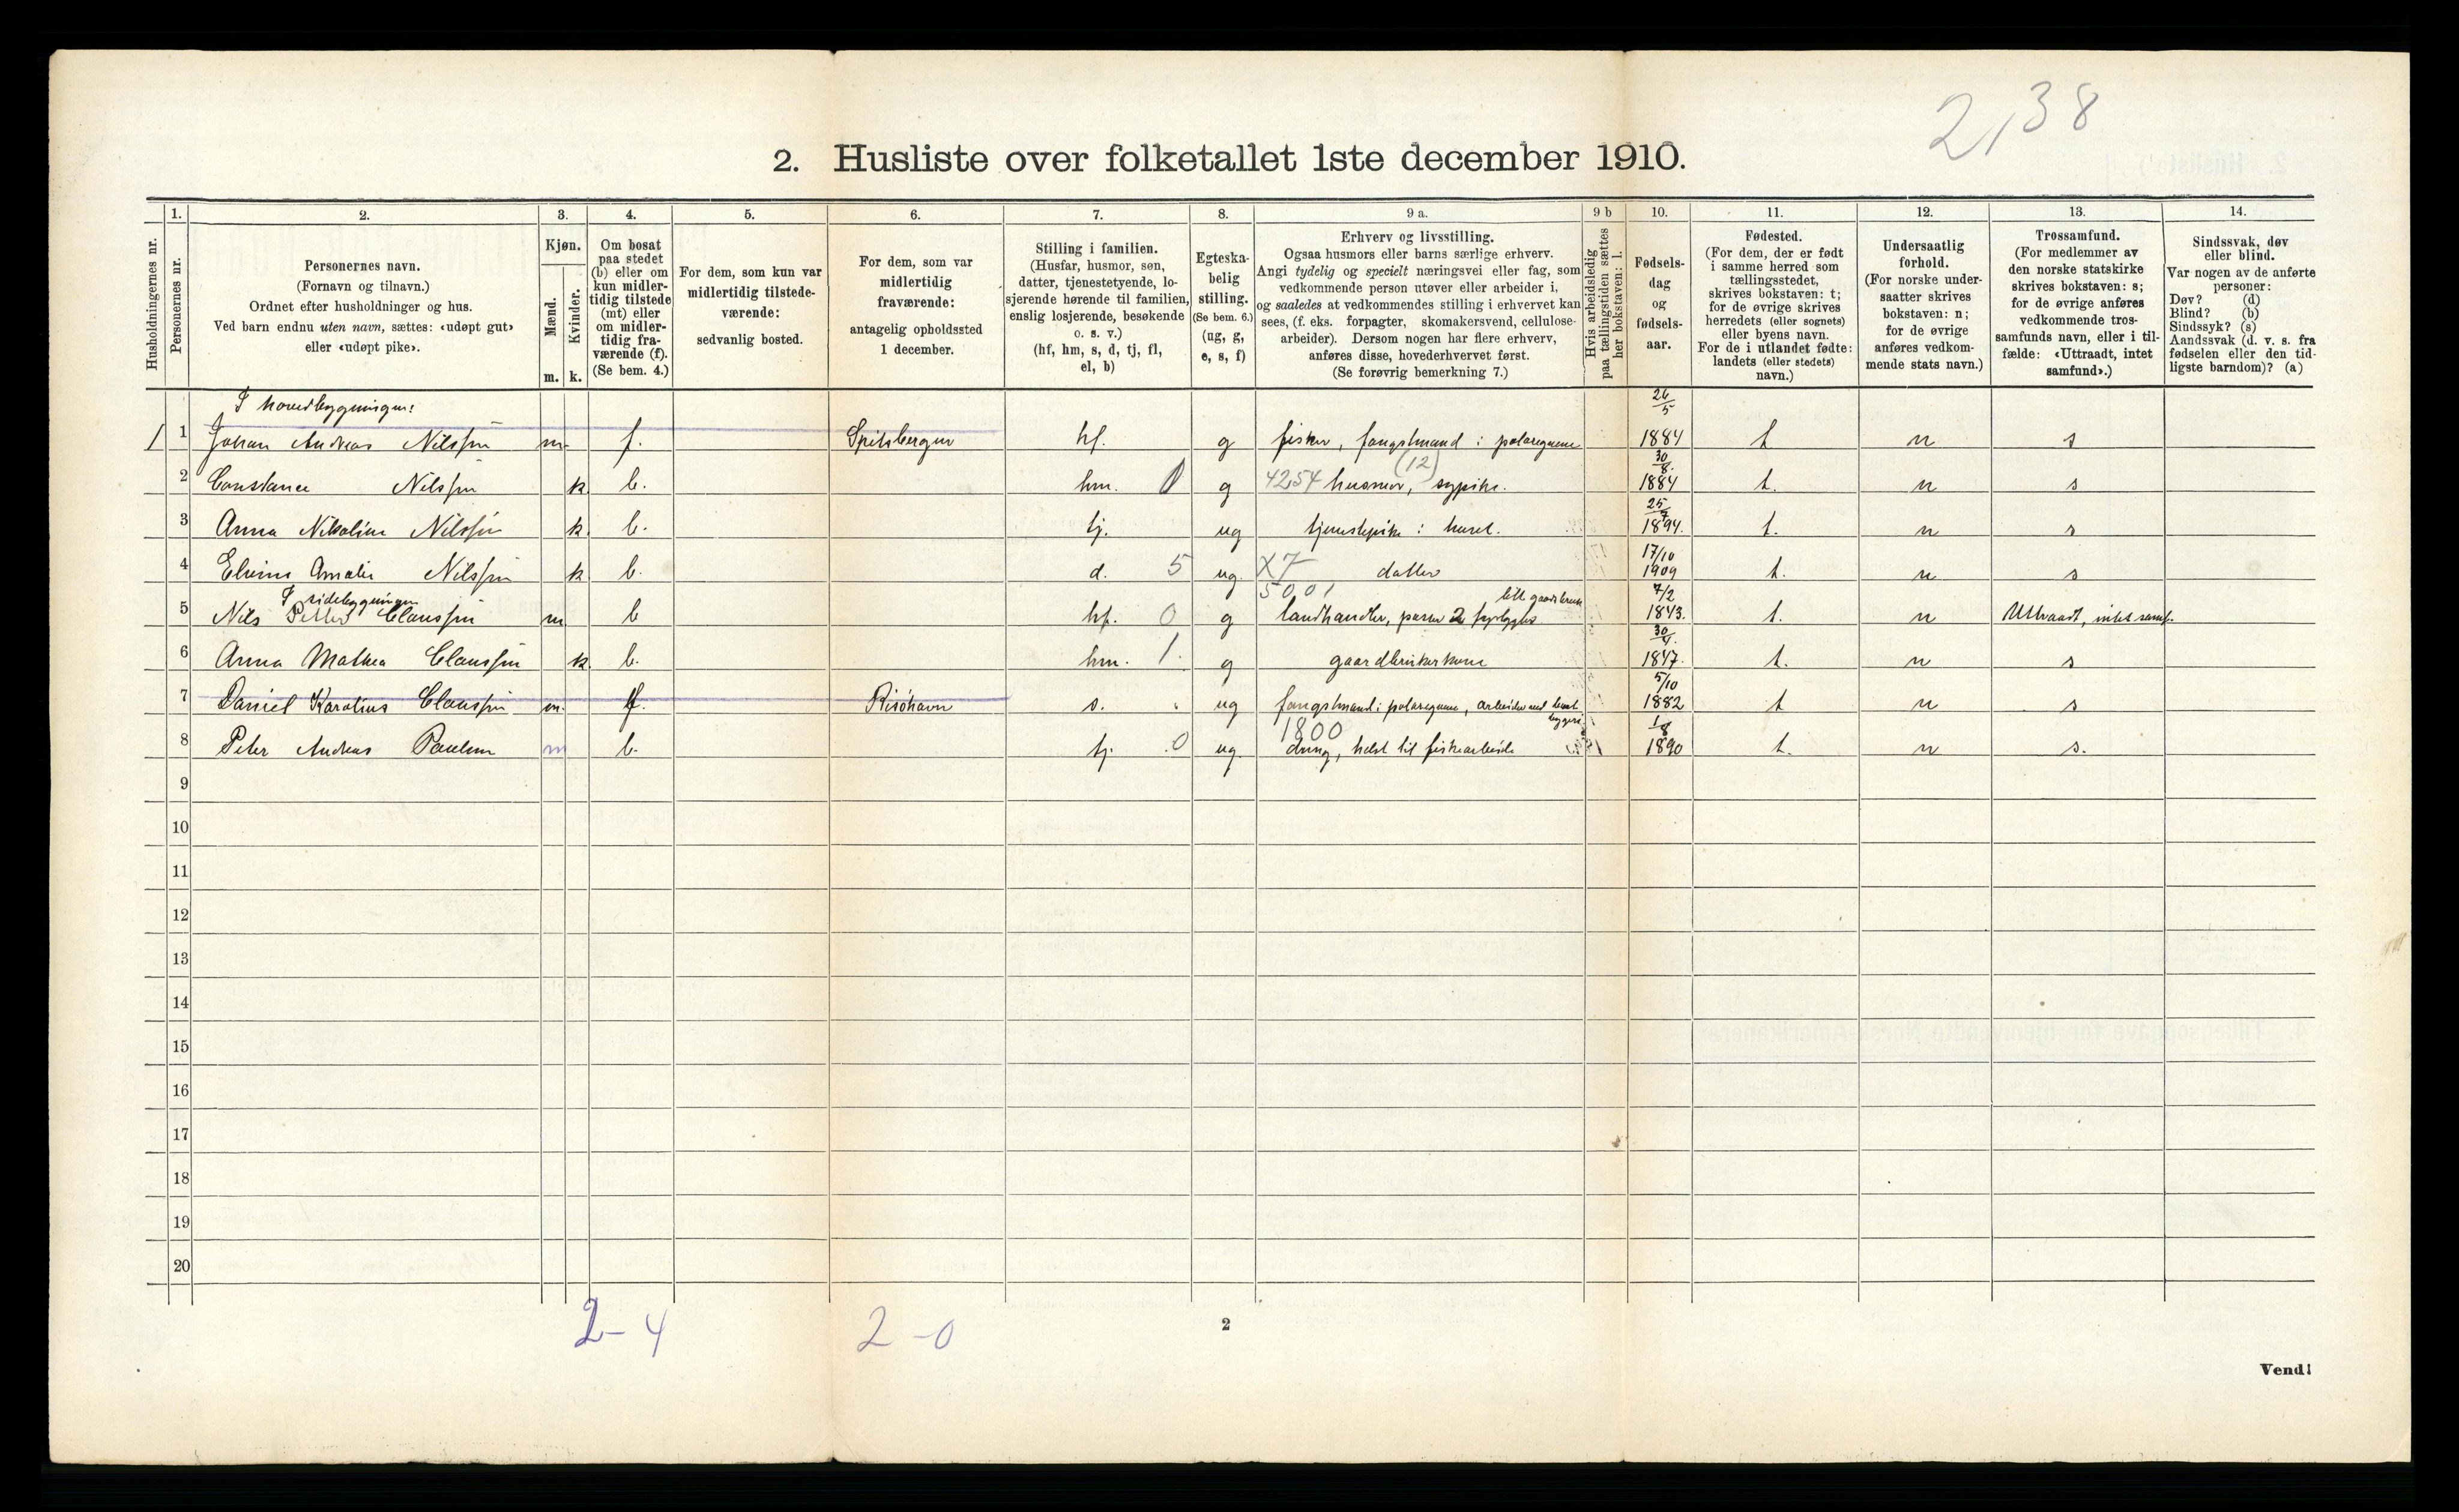 2,38
2. Husliste over folketallet 1ste december 1910.
1. 2. 3. 4. 5. 6. 7. 8. 9 a. 9 b 10. 11. 12. 13. 14.
Husholdningernes nr.
Personernes nr.
Personernes navn.
(Fornavn og tilnavn.)
Ordnet efter husholdninger og hus.
Ved barn endnu uten navn, sættes: «udøpt gut»
eller «udøpt pike».
Kjøn.
Mænd.
Kvinder.
m. k.
Om bosat
paa stedet
(b) eller om
kun midler-
tidig tilstede
(mt) eller
om midler-
tidig fra-
værende (f).
(Se bem. 4.)
For dem, som kun var
midlertidig tilstede-
værende:
sedvanlig bosted.
For dem, som var
midlertidig
fraværende:
antagelig opholdssted
1 december.
Stilling i familien.
(Husfar, husmor, søn,
datter, tjenestetyende, lo-
sjerende hørende til familien,
enslig losjerende, besøkende
o. s. v.)
(hf, hm, s, d, tj, fl,
el, b)
Egteska-
belig
stilling.
(Se bem. 6.)
(ug, g,
e, s, f)
Erhverv og livsstilling.
Ogsaa husmors eller barns særlige erhverv.
Angi tydelig og specielt næringsvei eller fag, som
vedkommende person utøver eller arbeider i,
og saaledes at vedkommendes stilling i erhvervet kan
sees, (f. eks. forpagter, skomakersvend, cellulose-
arbeider). Dersom nogen har flere erhverv,
anføres disse, hovederhvervet først.
(Se forøvrig bemerkning 7.)
Hvis arbeidsledig
paa tællingstiden sættes
her bokstaven: l.
Fødsels-
dag
og
fødsels-
aar.
Fødested.
(For dem, der er født
i samme herred som
tællingsstedet,
skrives bokstaven: t;
for de øvrige skrives
herredets (eller sognets)
eller byens navn.
For de i utlandet fødte:
landets (eller stedets)
navn.)
Undersaatlig
forhold.
(For norske under-
saatter skrives
bokstaven: n;
for de øvrige
anføres vedkom-
mende stats navn.)
Trossamfund.
(For medlemmer av
den norske statskirke
skrives bokstaven: s;
for de øvrige anføres
vedkommende tros-
samfunds navn, eller i til-
fælde: «Uttraadt, intet
samfund».)
Sindssvak, døv
eller blind.
Var nogen av de anførte
personer:
Døv? (d)
Blind? (b)
Sindssyk? (s)
Aandssvak (d. v. s. fra
fødselen eller den tid-
ligste barndom)? (a)
I hovedbygningen:
1 1 Johan Andreas Nilssen m. f. Spitsbergen hf. g fisker, fangstmand i polaregnene 26/5 1884 t n s
2 Constance Nilssen k b. hm. 0 g 4254 husmor, sypike. (12) 30/8. 1884 t. n s
3 Anna Nikoline Nilssen k b. tj. ug tjenestepike i huset. 25/7 1894. t. n s
4 Elvine Amalie Nilssen k b. d. 5 ug. X7 datter 17/10 1909 t. n s
I sidebygningen
5 Nils Petter Claussen m b hf. 0 g 5001 landhandler, passer 2 fyrlygter litt gaardsbruk 7/2 1843. t. n Uttraadt, intet samf.
6 Anna Mathea Claussen k b. hm. 1. g gaardbrukerkone 30/4. 1847. t. n s
7 Daniel Karolius Claussen m. f. Risöhavn s. ug fangstmand i polaregnene, arbeider ved havnebyggeri 5/10 1882 t n s
8 Peter Andreas Paulsen m b. tj. 0 ug 1800 dreng, helst til fiskearbeide 1/8 1890 t. n s.
9
10
11
12
13
14
15
16
17
18
19
20
2-4 2-0
2
Vend!